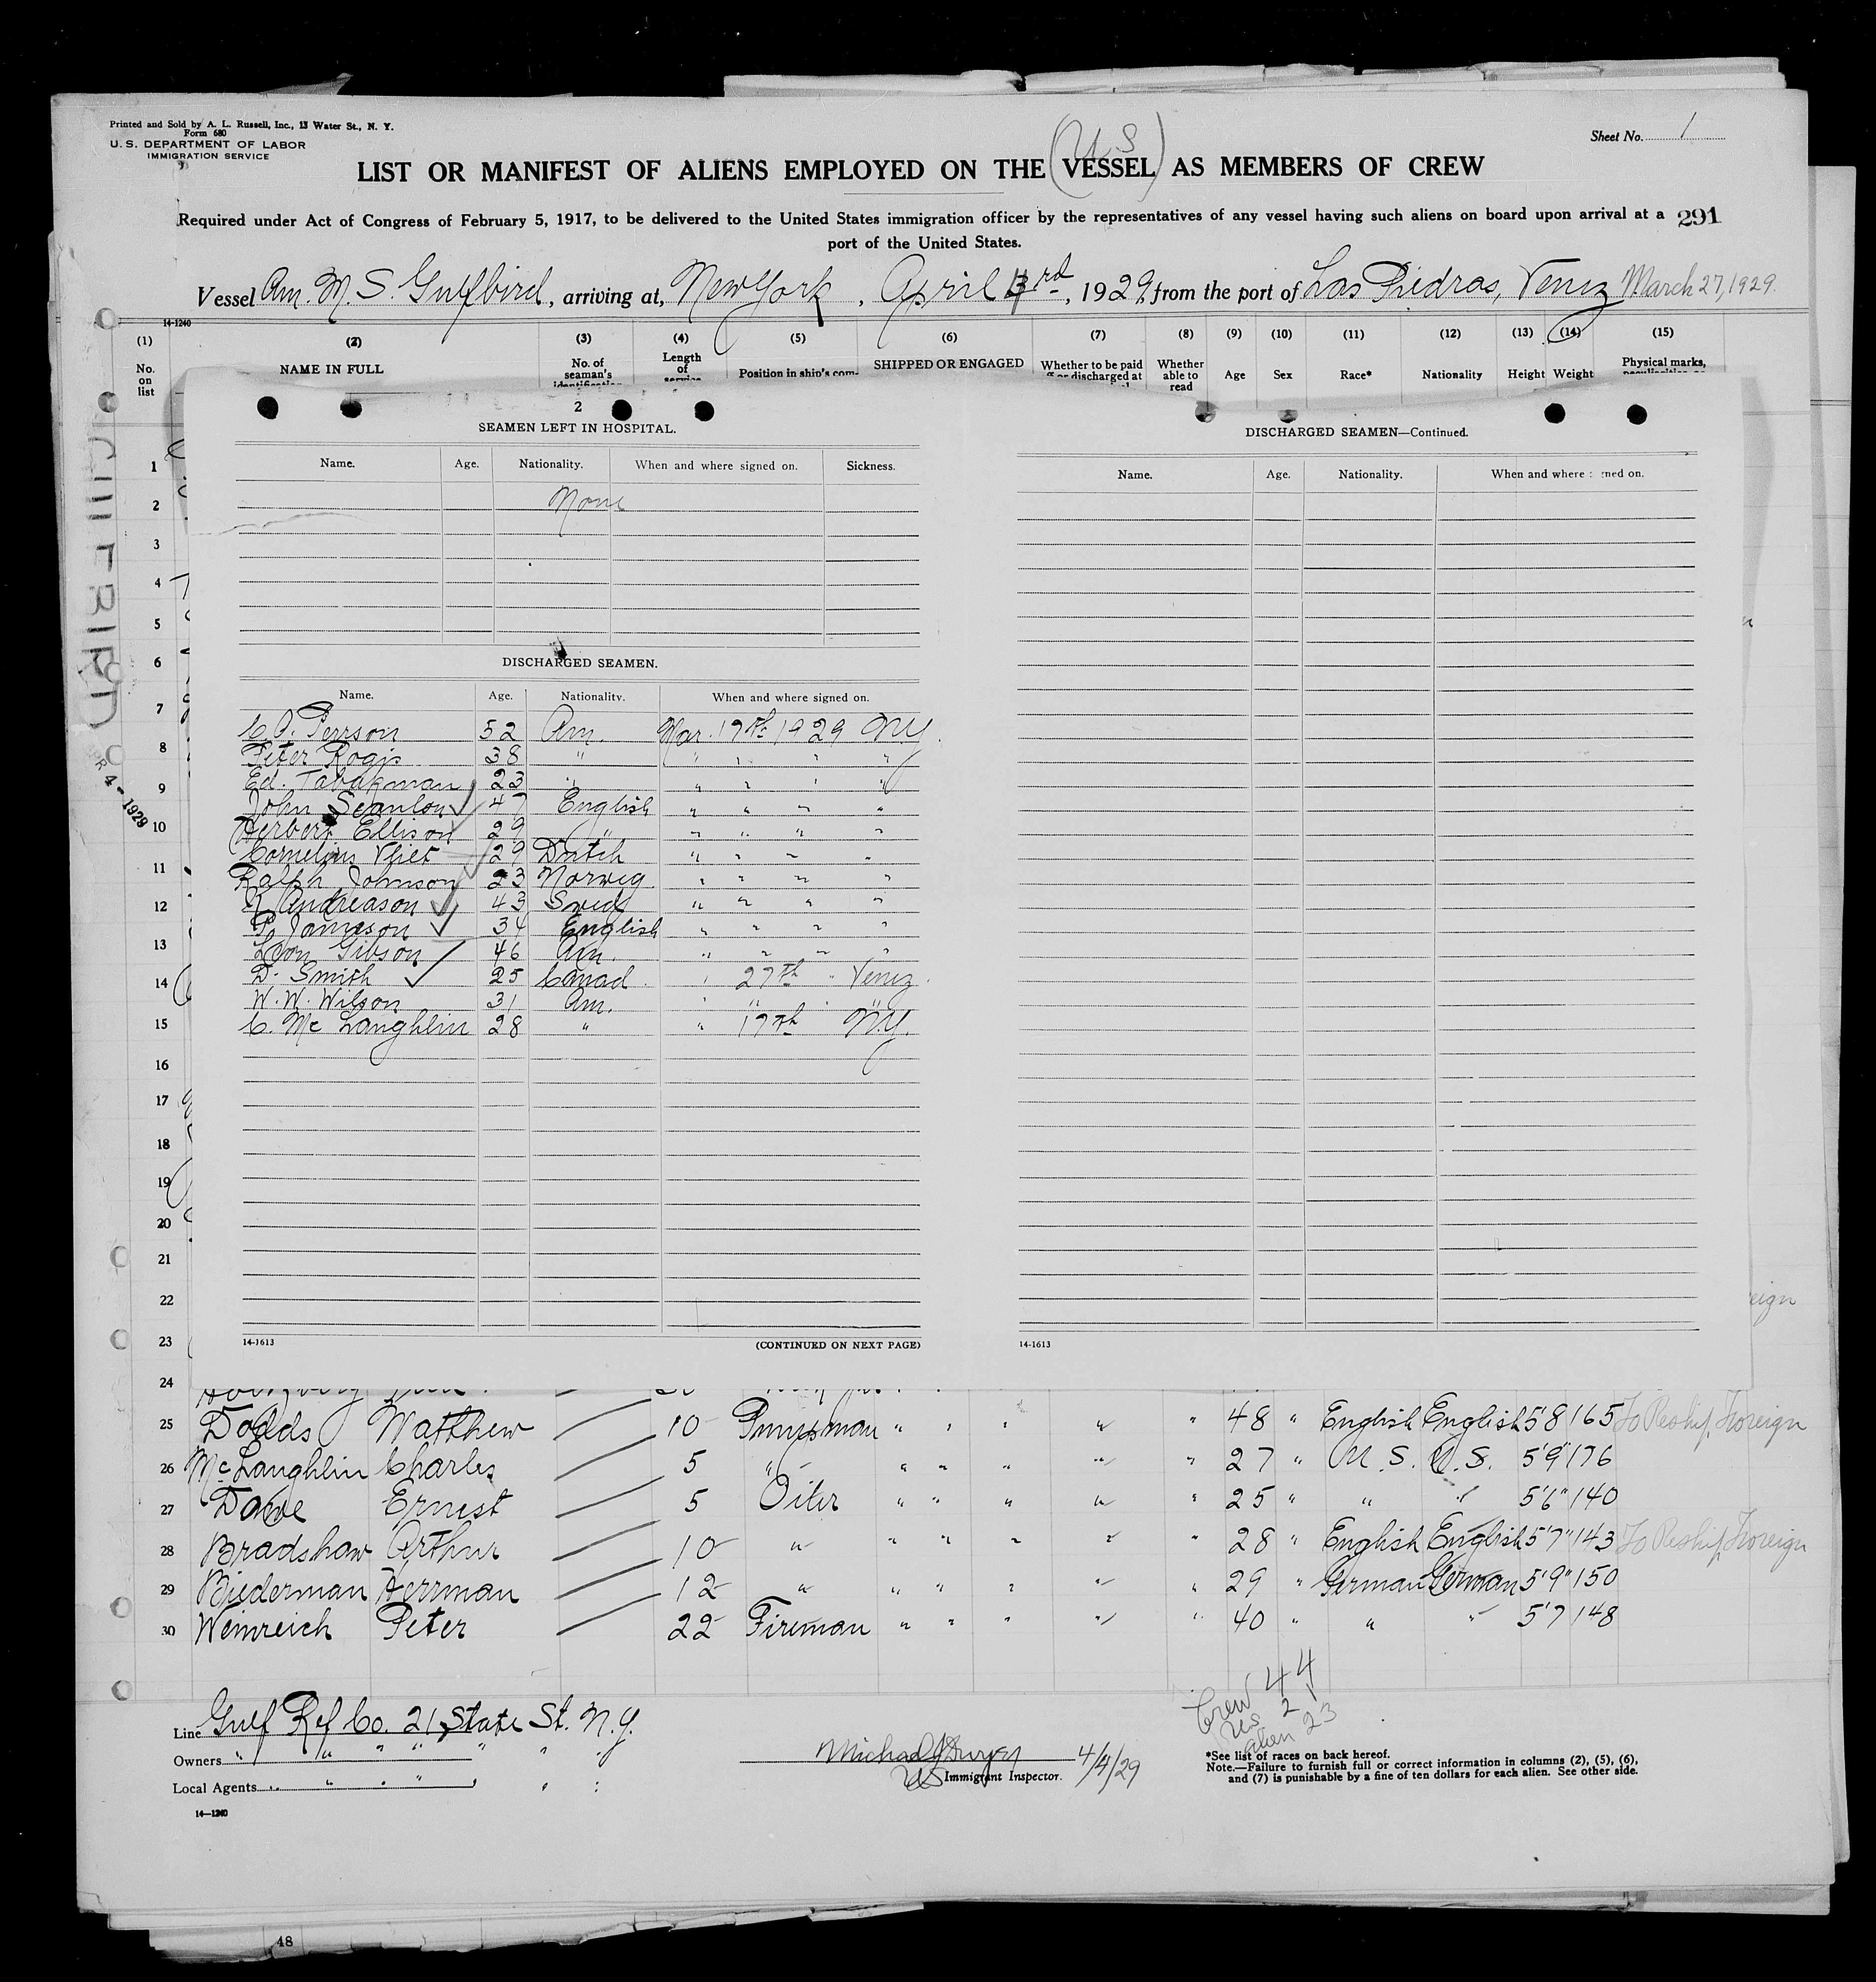 Printed and Sold by A. L. Russell, Inc., 13 Water St., N. Y.
Form 680
U. S. DEPARTMENT OF LABOR
IMMIGRATION SERVICE
Sheet No. 1
(U.S.)
LIST OR MANIFEST OF ALIENS EMPLOYED ON THE VESSEL AS MEMBERS OF CREW
Required under Act of Congress of February 5, 1917, to be delivered to the United States immigration officer by the representatives of any vessel having such aliens on board upon arrival at a 291
port of the United States.
Vessel Am. M. S. Gulfbird, arriving at, New York, April rd, 1929, from the port of Las Piedras, Venez March 27, 1929.
14-1240
(1) (2) (3) (4) (5) (6) (7) (8) (9) (10) (11) (12) (13) (14) (15)
No. on list NAME IN FULL No. of seaman's identification Length of service Position in ship's com- SHIPPED OR ENGAGED Whether to be paid off or discharged at Whether able to read Age Sex Race* Nationality Height Weight Physical marks,
2
SEAMEN LEFT IN HOSPITAL.
Name. Age. Nationality. When and where signed on. Sickness.
None
DISCHARGED SEAMEN.
Name. Age. Nationality. When and where signed on.
C. P. Person 52 Am. Mar. 17th 1929 N.Y.
Peter Rogis 38 " " " " "
Ed. Tabakman 23 " " " " "
John Scanlon ✓ 47 English " " " "
Herbert Ellison 29 " " " " "
Cornelius Vliet 29 Dutch " " " "
Ralph Johnson 23 Norweg. " " " "
R. Andreason ✓ 43 Swed " " " "
P. Jameson ✓ 34 English " " " "
Leon Gibson 46 Am. " " " "
D. Smith ✓ 25 Canad. " 27th " Venez.
W. W. Wilson 31 Am. " " " "
C. McLaughlin 28 " " 17th N.Y.
14-1613
(CONTINUED ON NEXT PAGE)
DISCHARGED SEAMEN—Continued.
Name. Age. Nationality. When and where signed on.
14-1613
1
2
3
4
5
6
7
8
9
10
11
12
13
14
15
16
17
18
19
20
21
22
23
24
GULFBIRD
R 4 - 1929
eign
25 Dodds Matthew 10 Pumpman " " " " " 48 " English English 5'8 165 To Reship Foreign
26 McLaughlin Charles 5 " " " " " " 27 " U.S. U.S. 5'9" 176
27 Dowe Ernest 5 Oiler " " " " " 25 " " " 5'6" 140
28 Bradshaw Arthur 10 " " " " " " 28 " English English 5'7" 143 To Reship Foreign
29 Biederman Herrman 12 " " " " " " 29 " German German 5'9" 150
30 Weinreich Peter 22 Fireman " " " " " 40 " " " 5'7 148
Crew 44
US 21
alien 23
Line Gulf Ref Co. 21 State St. N.Y.
Owners " " " " " " "
Local Agents " " " " " " "
14—1240
US Immigrant Inspector. 4/4/29
*See list of races on back hereof.
Note.—Failure to furnish full or correct information in columns (2), (5), (6),
and (7) is punishable by a fine of ten dollars for each alien. See other side.
48